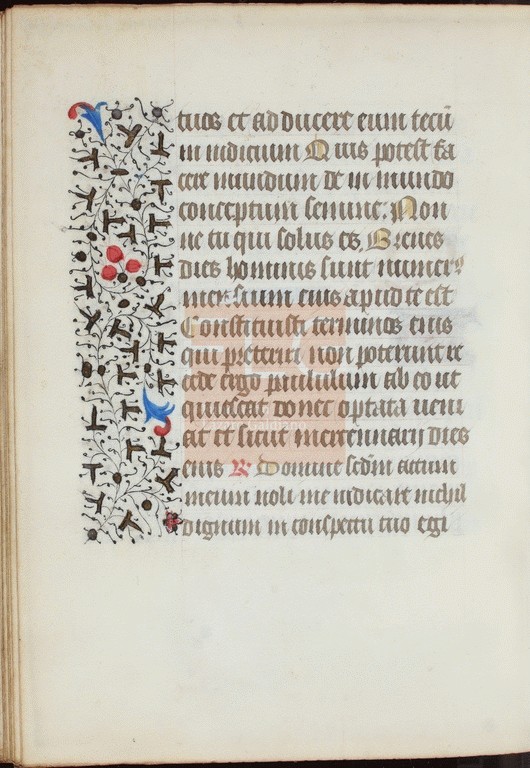 tuos et adducere eum tecū
in iudicium Quis potest fa
cere mundum de in mundo
conceptum semine: Non
ne tu qui solus es. Breues
dies hominis sunt numerꝰ
mensium eius apud te est
Constituisti terminos eius
qui preteriri non poterunt re
cede ergo paululum ab eo ut
quiescat donec optata ueni
at et sicut mercennarij dies
eius ℟. Domine scd̄m actum
meum noli me iudicare nichil
dignum in conspectu tuo egi
Lázaro Galdiano